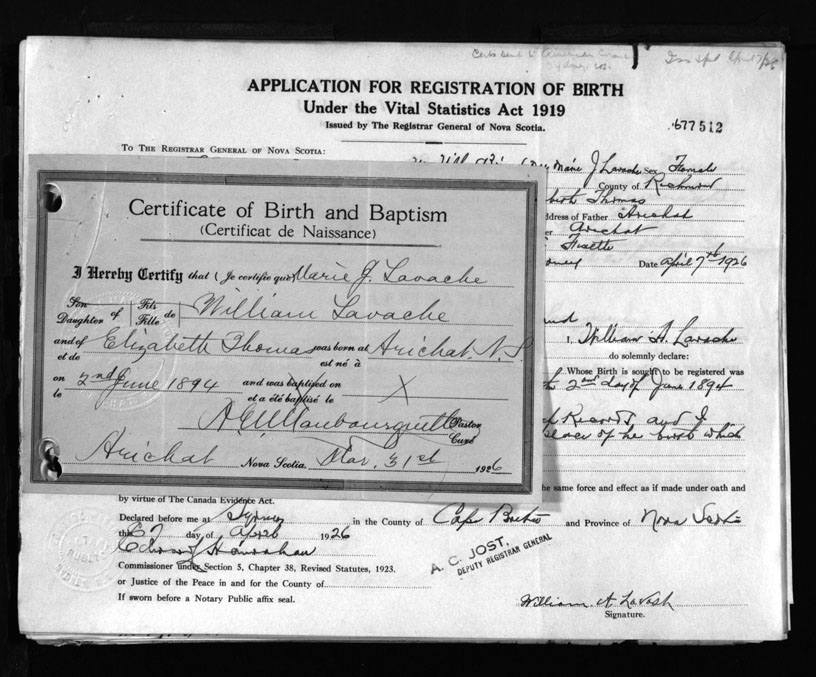 Certs sent to
APPLICATION FOR REGISTRATION OF BIRTH
Under the Vital Statistics Act 1919
Issued by The Registrar General of Nova Scotia.
677512
To The Registrar General of Nova Scotia:
Marie J Lavache Sex Female
County of Richmond
Thomas
ddress of Father Arichat
er Arichat
Date April 7th 1926
Certificate of Birth and Baptism
(Certificat de Naissance)
I Hereby Certify that (Je certifie que Marie J. Lavache
Son Fils
Daughter of Fille de William Lavache
and of Elizabeth Thomas was born at Arichat N.S
et de est né à
on 2nd June 1894 and was baptised on X
le et a été baptisé le
Pastor
Curé
Arichat Nova Scotia, Mar. 31st 1926
I, William A. Lavache
do solemnly declare:
Whose Birth is sought to be registered was
2nd day of June 1894
Records and I
place of the birth which
he same force and effect as if made under oath and
by virtue of The Canada Evidence Act.
Declared before me at Sydney in the County of Cape Breton and Province of Nova Scotia
this day of April 1926
Commissioner under Section 5, Chapter 38, Revised Statutes, 1923.
or Justice of the Peace in and for the County of
If sworn before a Notary Public affix seal.
A. C. JOST,
DEPUTY REGISTRAR GENERAL
William A LaVash
Signature.